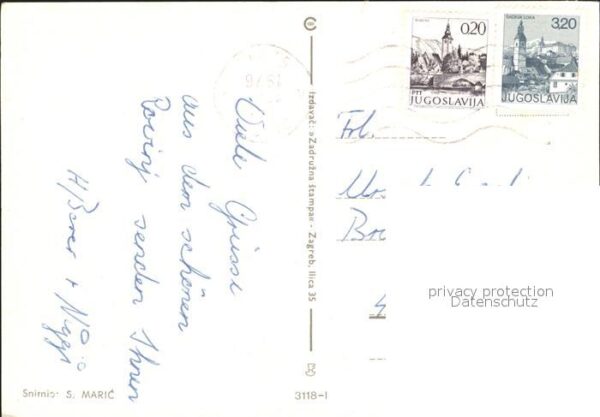 Viele Grüsse
aus dem schönen
Rovinj senden Ihnen
Snimio: S. MARIĆ
Izdavač: »Zadružna štampa« - Zagreb, Ilica 35
3118-I
0,20
PTT
JUGOSLAVIJA
ŠKOFJA LOKA
3,20
JUGOSLAVIJA
Frl.
privacy protection
Datenschutz